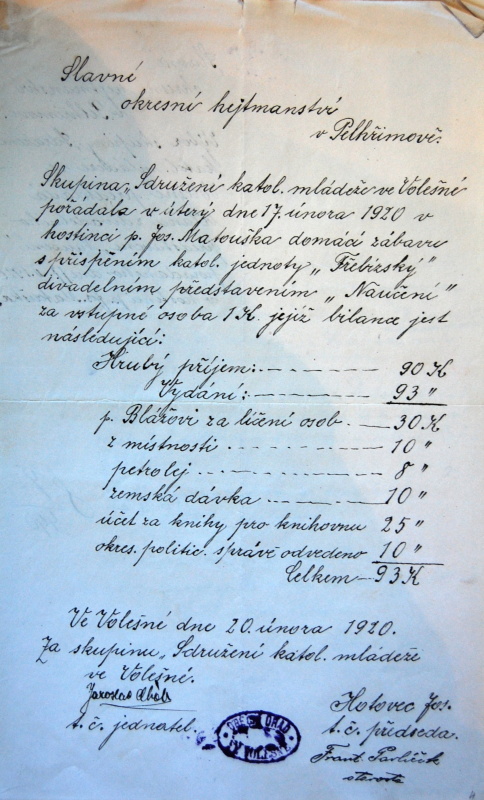 Slavné
okresní hejtmanství
v Pelhřimově.
Skupina „Sdružení katol. mládeže ve Volešné
pořádala v úterý dne 17. února 1920 v
hostinci p. Jos. Matouška domácí zábavu
s přispěním katol. jednoty „Třebízský"
divadelním představením „Naučení"
za vstupné osoba 1 K. jejíž bilance jest
následující:
Hrubý příjem:. - - - - - - - 90 K
Vydání:. - - - - - - - 93 "
p. Blážovi za líčení osob . - - 30 K
z místnosti . - - - - - - - 10 "
petrolej . . . - - - - - - - 8 "
zemská dávka - - - - - - - 10 "
účet za knihy pro knihovnu 25 "
okres. politic. správě odvedeno 10 "
Celkem - 93 K
Ve Volešné dne 20. února 1920.
Za skupinu „Sdružení katol. mládeže
ve Volešné.
Jaroslav
t. č. jednatel.
Hotovec Jos.
t. č. předseda.
OBECNÍ ÚŘAD
Frant. Pavlíček
starosta